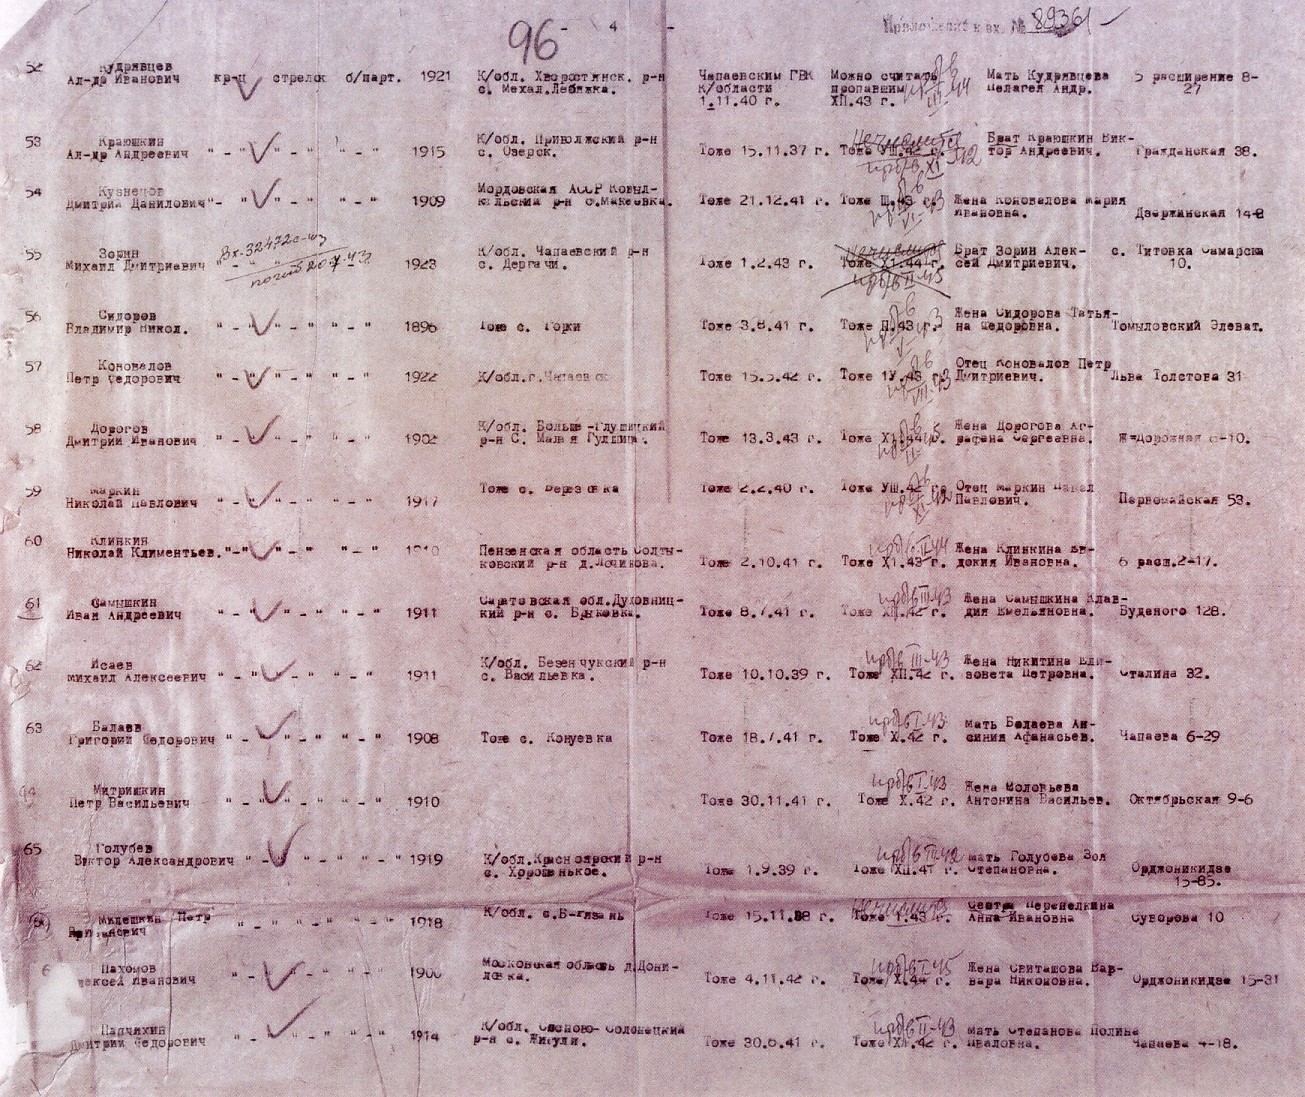 96 - 4 -
Приложение к вх. № 89361
52 Кудрявцев
Ал-др Иванович кр-ц стрелок б/парт. 1921 К/обл. Хворостянск. р-н Чапаевским ГВК Можно считать Мать Кудрявцева 5 расширение 8-
с. Мехал.Лебяжка. К/области пропавшим Пелагея Андр. 27
1.11.40 г. ХП.43 г.
53 Краюшкин К/обл. Приволжский р-н Брат Краюшкин Вик-
Ал-др Андреевич " - " - " " - " 1915 с. Озерск. Тоже 15.11.37 г. Тоже УШ.42 г. тор Андреевич. Гражданская 38.
54 Кузнецов Мордовская АССР Ковыл-
Дмитрий Данилович " - " - " " - " 1909 кильский р-н с.Макеевка. Тоже 21.12.41 г. Тоже Ш.43 г. Жена Коновалова Мария
Ивановна. Дзержинская 14-2
55 Зорин Вх-32472с-43 К/обл. Чапаевский р-н Брат Зорин Алек- с. Титовка Самарска
Михаил Дмитриевич погиб 20.7.43г 1923 с. Дергачи. Тоже 1.2.43 г. Тоже Х1.44 г. сей Дмитриевич. 10.
56 Сидоров Жена Сидорова Татья-
Владимир Никол. " - " - " " - " 1896 Тоже с. Горки Тоже 3.8.41 г. Тоже П.43 г. на Федоровна. Томыловский Элеват.
57 Коновалов Отец Коновалов Петр
Петр Федорович " - " - " " - " 1922 К/обл.г.Чапаевск Тоже 15.5.42 г. Тоже 1У.43 г. Дмитриевич. Льва Толстова 31
58 Дорогов К/обл. Больше-Глушицкий Жена Дорогова Аг-
Дмитрий Иванович " - " - " " - " 1902 р-н С. Малая Гулшица. Тоже 13.3.43 г. Тоже Х1.44 г. рафена Сергеевна. Ж-Дорожная 6-10.
59 Маркин Тоже с. Березовка Тоже 2.2.40 г. Тоже УШ.42 г. Отец Маркин Павел
Николай Павлович " - " - " " - " 1917 Павлович. Первомайская 53.
60 Клинкин
Николай Климентьев. " - " - " " - " 1910 Пензенская область Солты- Жена Клинкина Ев-
ковский р-н д. Тоже 2.10.41 г. Тоже Х1.43 г. докия Ивановна. 6 расш.2-17.
61 Самышкин Саратовская обл.Духовниц- Жена Самышкина Клав-
Иван Андреевич " - " - " " - " 1911 кий р-н с. Брыковка. Тоже 8.7.41 г. Тоже ХП.42 г. дия Емельяновна. Буденого 128.
62 Исаев К/обл. Безенчукский р-н Жена Никитина Ели-
Михаил Алексеевич " - " - " " - " 1911 с. Васильевка. Тоже 10.10.39 г. Тоже ХП.42 г. зовета Петровна. Сталина 32.
63 Балаев Мать Балаева Ак-
Григорий Федорович " - " - " " - " 1908 Тоже с. Конуевка Тоже 18.7.41 г. Тоже Х.42 г. синия Афанасьев. Чапаева 6-29
64 Митришкин Жена Соловьева
Петр Васильевич " - " - " " - " 1910 Тоже 30.11.41 г. Тоже Х.42 г. Антонина Васильев. Октябрьская 9-6
65 Голубев К/обл.Красноярский р-н Мать Голубева Зоя
Виктор Александрович " - " - " " - " 1919 с. Хорошенькое. Тоже 1.9.39 г. Тоже ХП.41 г. Степановна. Орджоникидзе
15-85.
Милешкин Петр 1918 К/обл. Тоже 15.11.38 г. Тоже 1.43 г. Сестра Перепелкина
Анна Ивановна Суворова 10
6 Пахомов Московская область д.Дони- Жена Свиташова Вар-
Алексей Иванович " - " - " " - " 1900 ловка. Тоже 4.11.42 г. Тоже Х.44 г. вара Никоновна. Орджоникидзе 15-31
Папчихин К/обл. Сосново-Солонецкий Мать Степанова Полина
Дмитрий Федорович " - " - " " - " 1914 р-н с. Жигули. Тоже 30.6.41 г. Тоже ХП.42 г. Иваловна. Чапаева 4-18.